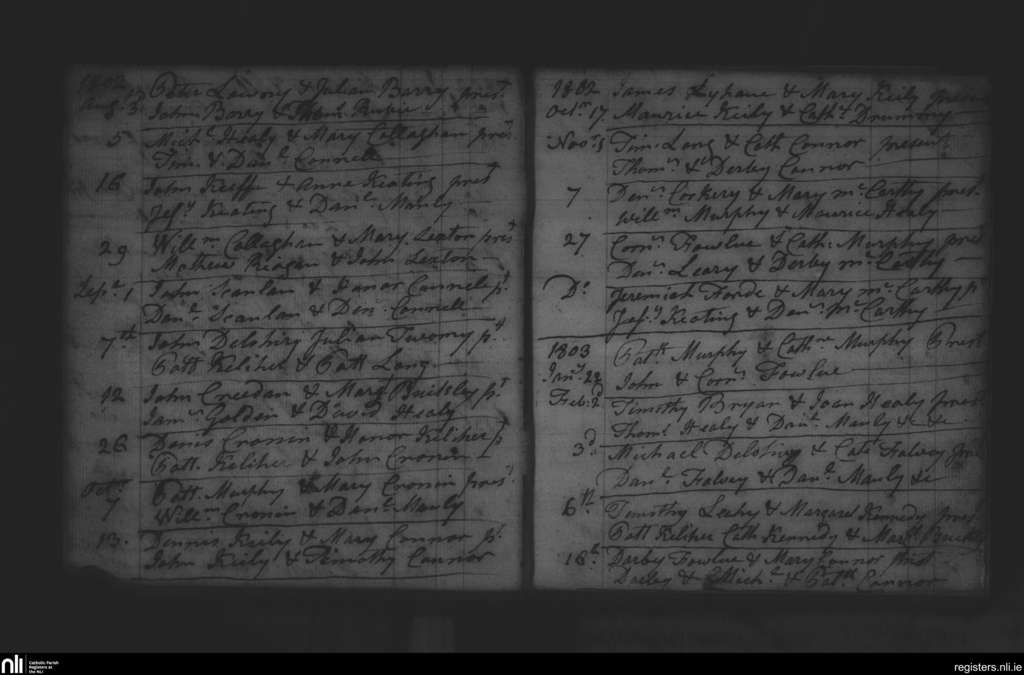 1802 Peter Lawory & Julian Barry pres.t
Aug. 3 John Barry &
5 Mich.l Healy & Mary Callaghan pres.t
Tim. & Dan.l Connell
16 John Keeffe & Anne Keating pres.t
Jef.y Keating & Dan.l Manly
29 Will.m Callaghan & Mary Sexton pres.t
Mathew Riagan & John Sexton
Sep.r 1 John Scanlan & Honor Connell p.t
Dan.l Scanlan & Den. Connell
7th John Delohiry Julian Twomy p.t
Patt Keliher & Patt Long
12 John Creedan & Mary Buckley p.t
Jam.s Golden & David Healy
26 Denis Cronin & Honor Keliher p.t
Patt. Keliher & John Cronin
Oct.r Patt. Murphy & Mary Cronin pres.t
7 Will.m Cronin & Dan.l Manly
13. Dennis Keily & Mary Connor p.t
John Keily & Timothy Connor
1802 James Lyhane & Mary Keily present
Oct.r 17 Maurice Keily & Cath. Drummy
Nov.r 5 Tim. Long & Cath Connor present
Thom.s & Derby Connor
7 Den.s Corkery & Mary mc.Carthy pres.t
Will.m Murphy & Maurice Healy
27 Corn.s Fowlue & Cath. Murphy pres.t
Den.s Leary & Derby mc.Carthy
D.o Jeremiah Forde & Mary mc.Carthy p.t
Jef.y Keating & Den.s Mc.Carthy
1803 Patt Murphy & Cath.ne Murphy Prest
Jan.y 22 John & Corn.s Fowlue
Feb: 2d Timothy Bryan & Joan Healy pres.t
Thom.s Healy & Dan.l Manly &c &c
3d Michael Delohiry & Cate Falvey pres.t
Dan.l Falvey & Dan.l Manly &c
6th Timothy Leahy & Margaret Kennedy pres.t
Patt Keliher Cath Kennedy & Mar.t Buckley
16th Darby Fowlue & Mary Connor prest
Darby & Mich.l & Patt Connor
nli Catholic Parish
Registers at
the NLI
registers.nli.ie